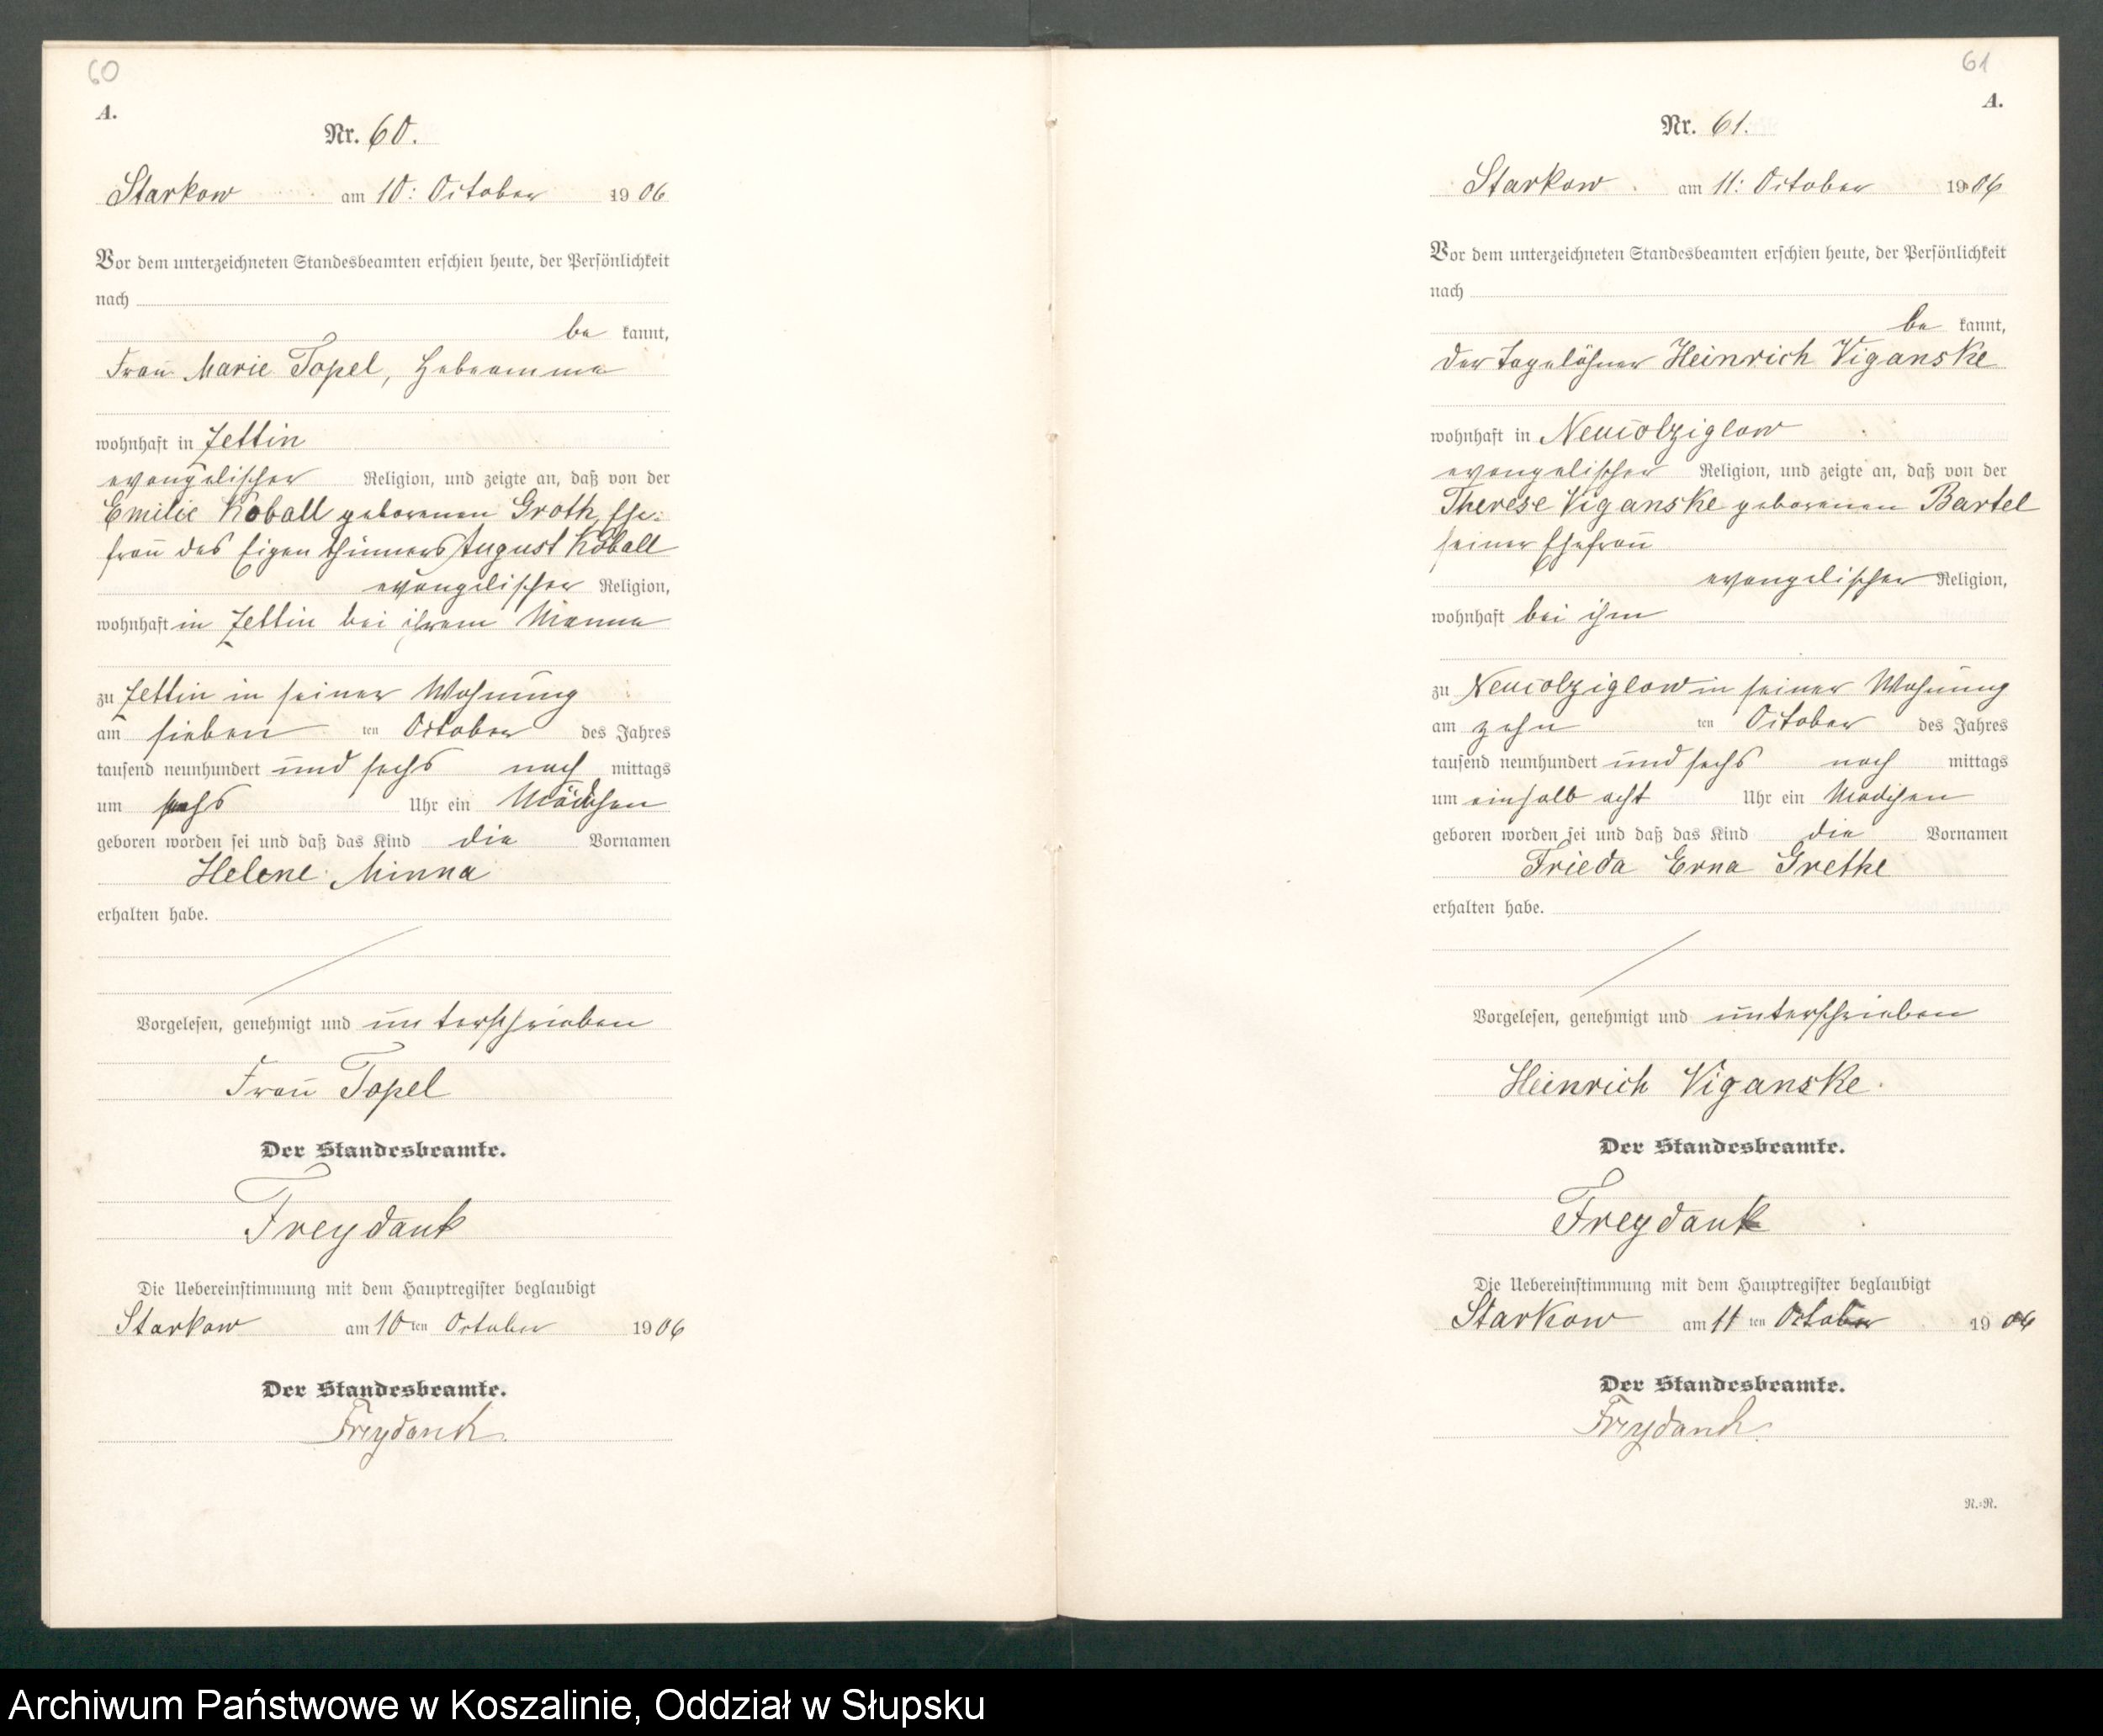 60
A.
Nr. 60.
Starkow am 10: October 1906
Vor dem unterzeichneten Standesbeamten erschien heute, der Persönlichkeit
nach
be kannt,
Frau Marie Topel, Hebeamme
wohnhaft in Zettin
evangelischer Religion, und zeigte an, daß von der
Emilie Koball geborenen Groth, Ehe-
frau des Eigenthümers August Koball
evangelischer Religion,
wohnhaft in Zettin bei ihrem Manne
zu Zettin in seiner Wohnung
am sieben ten October des Jahres
tausend neunhundert und sechs nach mittags
um sechs Uhr ein Mädchen
geboren worden sei und daß das Kind die Vornamen
Helene Minna
erhalten habe.
Vorgelesen, genehmigt und unterschrieben
Frau Topel
Der Standesbeamte.
Freydank
Die Uebereinstimmung mit dem Hauptregister beglaubigt
Starkow am 10 ten October 1906
Der Standesbeamte.
Freydank
61
A.
Nr. 61.
Starkow am 11: October 1906
Vor dem unterzeichneten Standesbeamten erschien heute, der Persönlichkeit
nach
be kannt,
der Tagelöhner Heinrich Viganske
wohnhaft in Neucolziglow
evangelischer Religion, und zeigte an, daß von der
Therese Viganske geborenen Bartel
seiner Ehefrau
evangelischer Religion,
wohnhaft bei ihm
zu Neucolziglow in seiner Wohnung
am zehn ten October des Jahres
tausend neunhundert und sechs nach mittags
um einhalb acht Uhr ein Mädchen
geboren worden sei und daß das Kind die Vornamen
Frieda Erna Grethe
erhalten habe.
Vorgelesen, genehmigt und unterschrieben
Heinrich Viganske.
Der Standesbeamte.
Freydank
Die Uebereinstimmung mit dem Hauptregister beglaubigt
Starkow am 11 ten October 1906
Der Standesbeamte.
Freydank
R.-R.
Archiwum Państwowe w Koszalinie, Oddział w Słupsku